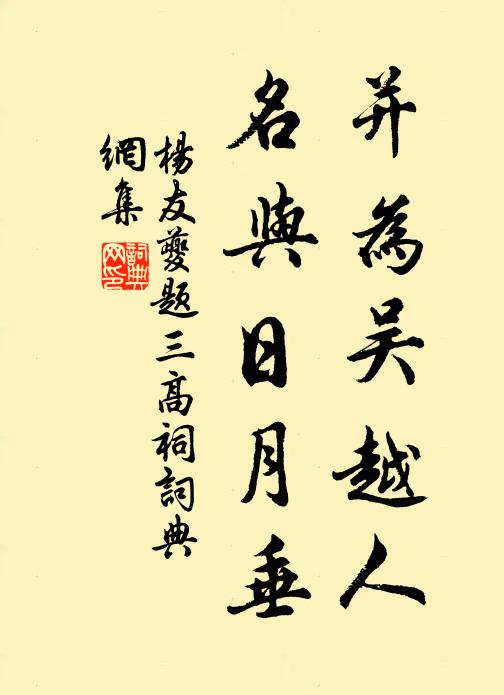 并為吴越人
名與日月垂
楊友夔題三高祠詞典
網集
詞典網印